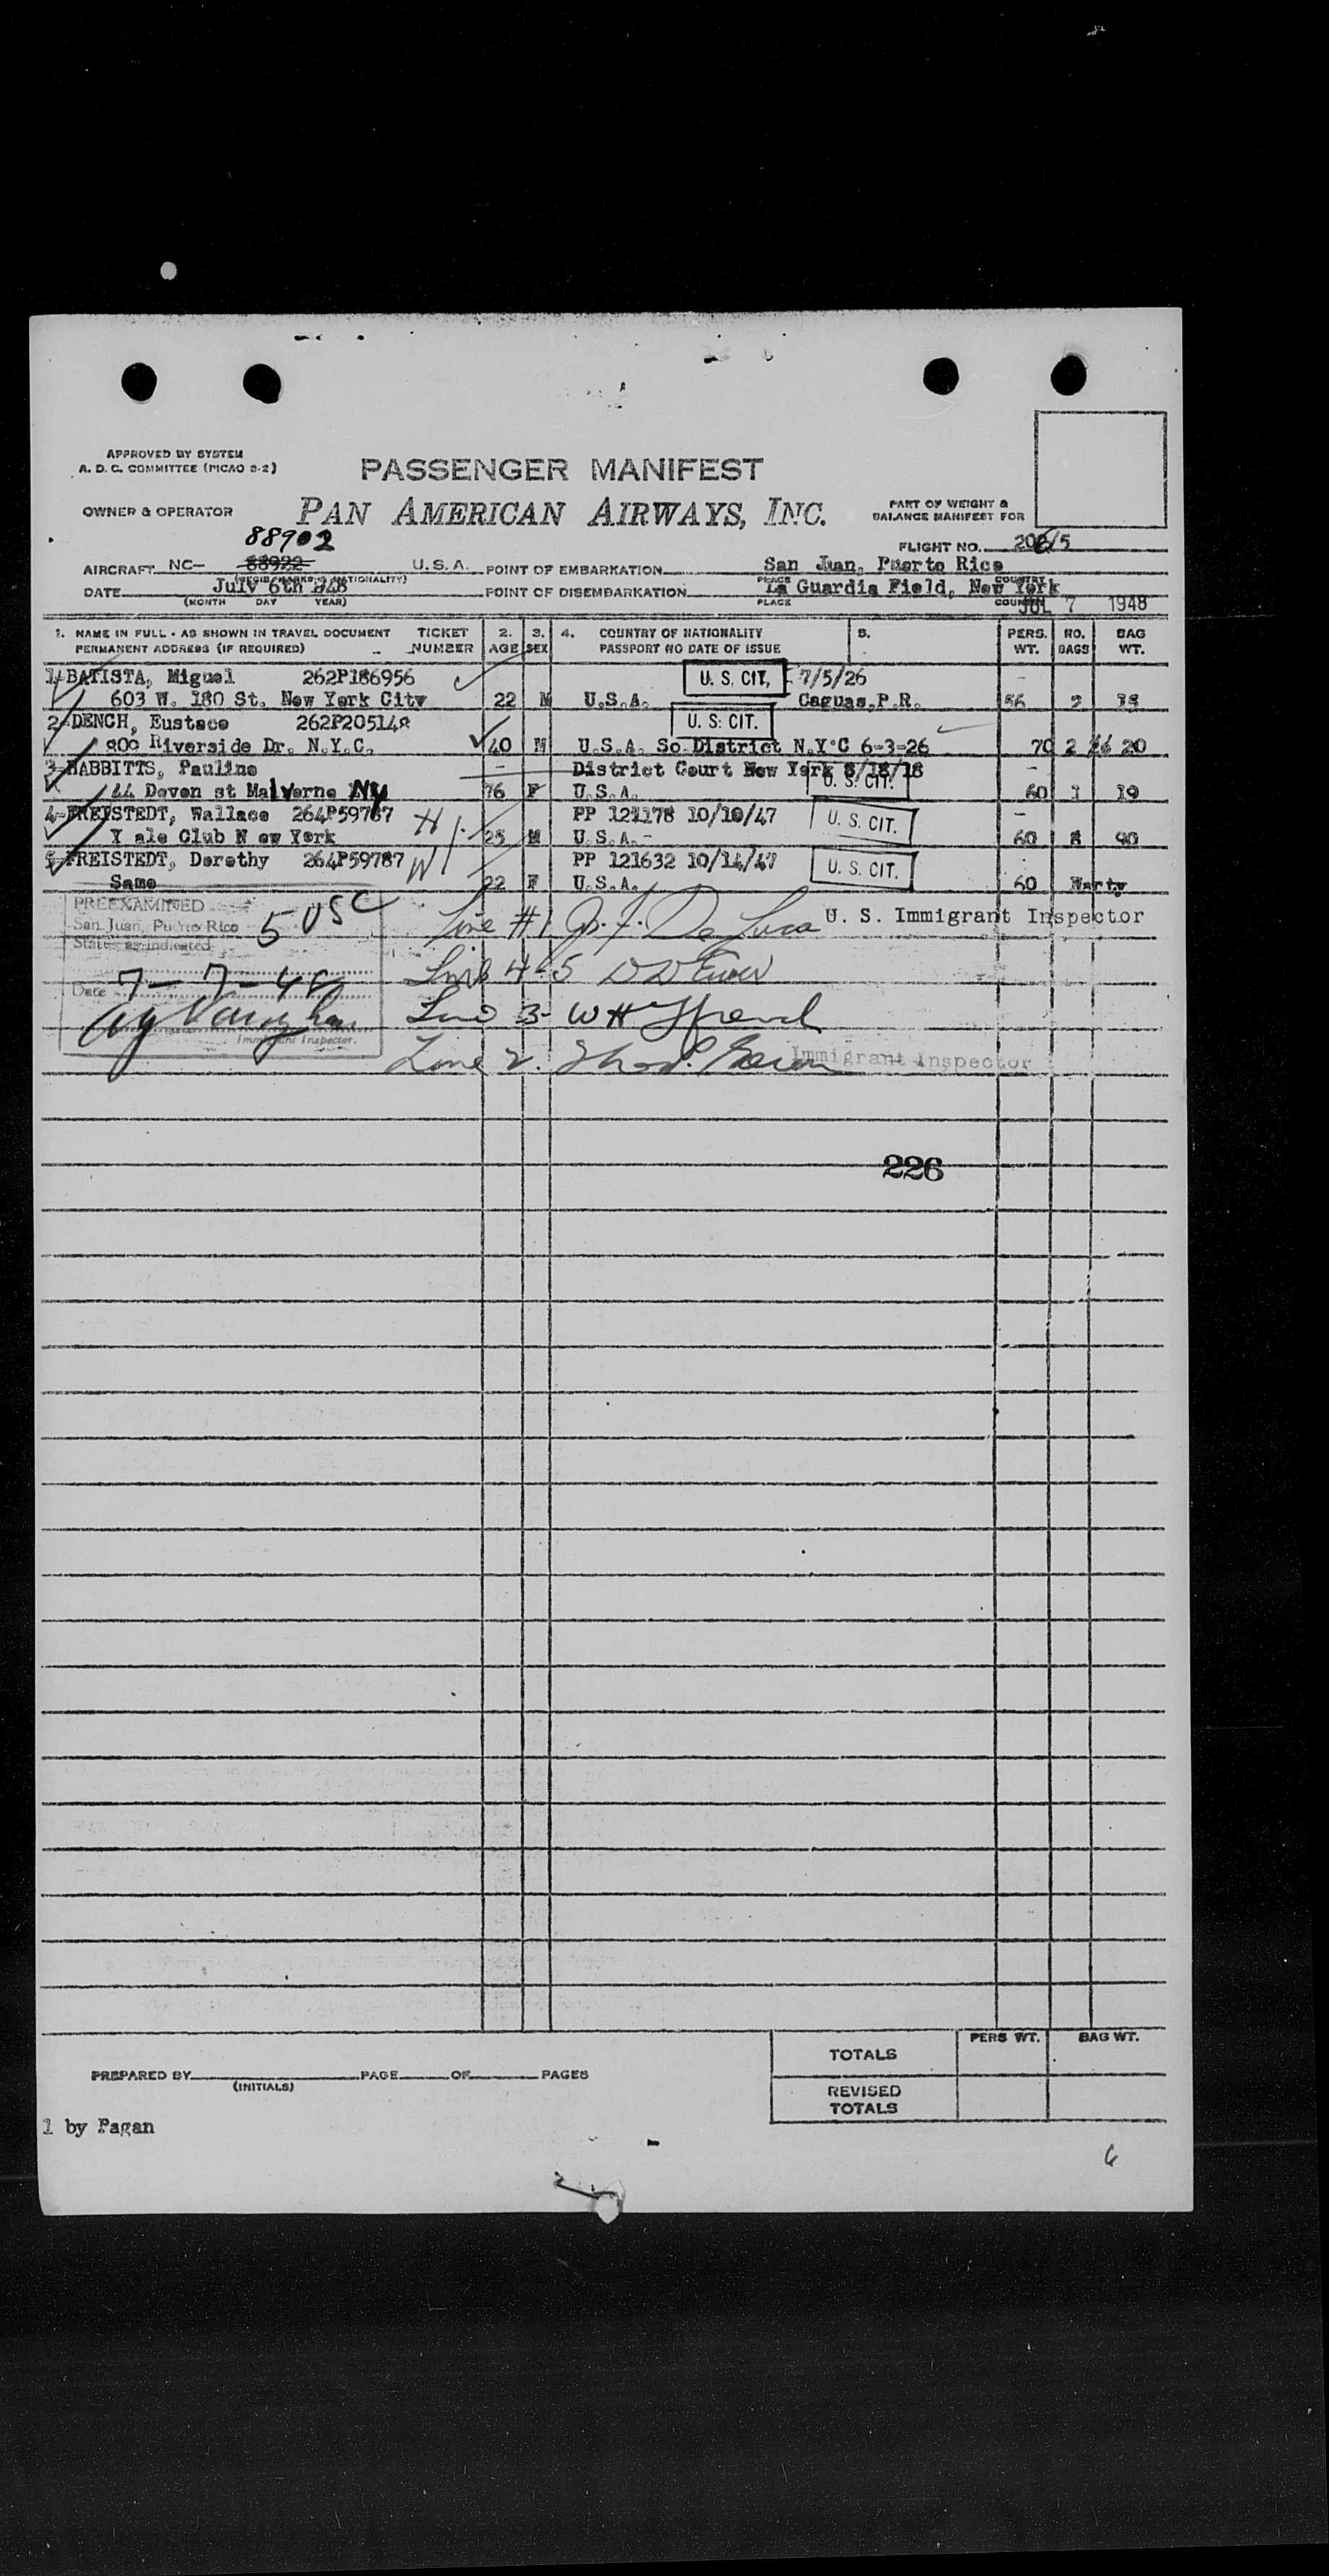 APPROVED BY SYSTEM
A. D. C. COMMITTEE (PICAO S-2)
PASSENGER MANIFEST
OWNER & OPERATOR PAN AMERICAN AIRWAYS, INC.
PART OF WEIGHT &
BALANCE MANIFEST FOR
88902
FLIGHT NO. 206/5
AIRCRAFT NC- 88922 U.S.A. POINT OF EMBARKATION San Juan, Puerto Rico
DATE July 6th 948 POINT OF DISEMBARKATION La Guardia Field, New York
(MONTH DAY YEAR) PLACE COUNTRY
JUL 7 1948
1. NAME IN FULL - AS SHOWN IN TRAVEL DOCUMENT TICKET 2. 3. 4. COUNTRY OF NATIONALITY 5. PERS. NO. BAG
PERMANENT ADDRESS (IF REQUIRED) NUMBER AGE SEX PASSPORT NO DATE OF ISSUE WT. BAGS WT.
1-BATISTA, Miguel 262P186956 U. S. CIT. 7/5/26 -
603 W. 180 St. New York City 22 M U.S.A. Caguas,P.R. 56 2 15
2-DENCH, Eustace 262P205148 U. S. CIT.
800 Riverside Dr. N.Y.C. 40 M U.S.A. So District N.Y.C 6-3-26 70 2 20
3-BABBITTS, Pauline - District Court New York 8/18/18 -
44 Deven st Malverne NY 76 F U.S.A. U. S. CIT. 60 1 19
4-FREYSTEDT, Wallace 264P59787 H PP 121178 10/10/47 U. S. CIT. -
Y ale Club N ew York 25 M U.S.A.- 60 8 90
5-FREISTEDT, Dorothy 264P59787 W PP 121632 10/14/47 U. S. CIT.
Same 22 F U.S.A. 60 Warty
PREEXAMINED
San Juan, Puerto Rico
Status as indicated
5 USC
Date 7-7-48
Immigrant Inspector.
Line #1 De Luca U. S. Immigrant Inspector
Line 4-5
Line 3- WH
Line 2. Immigrant Inspector
226
PREPARED BY PAGE OF PAGES
(INITIALS)
PERS WT. BAG WT.
TOTALS
REVISED
TOTALS
1 by Pagan
6